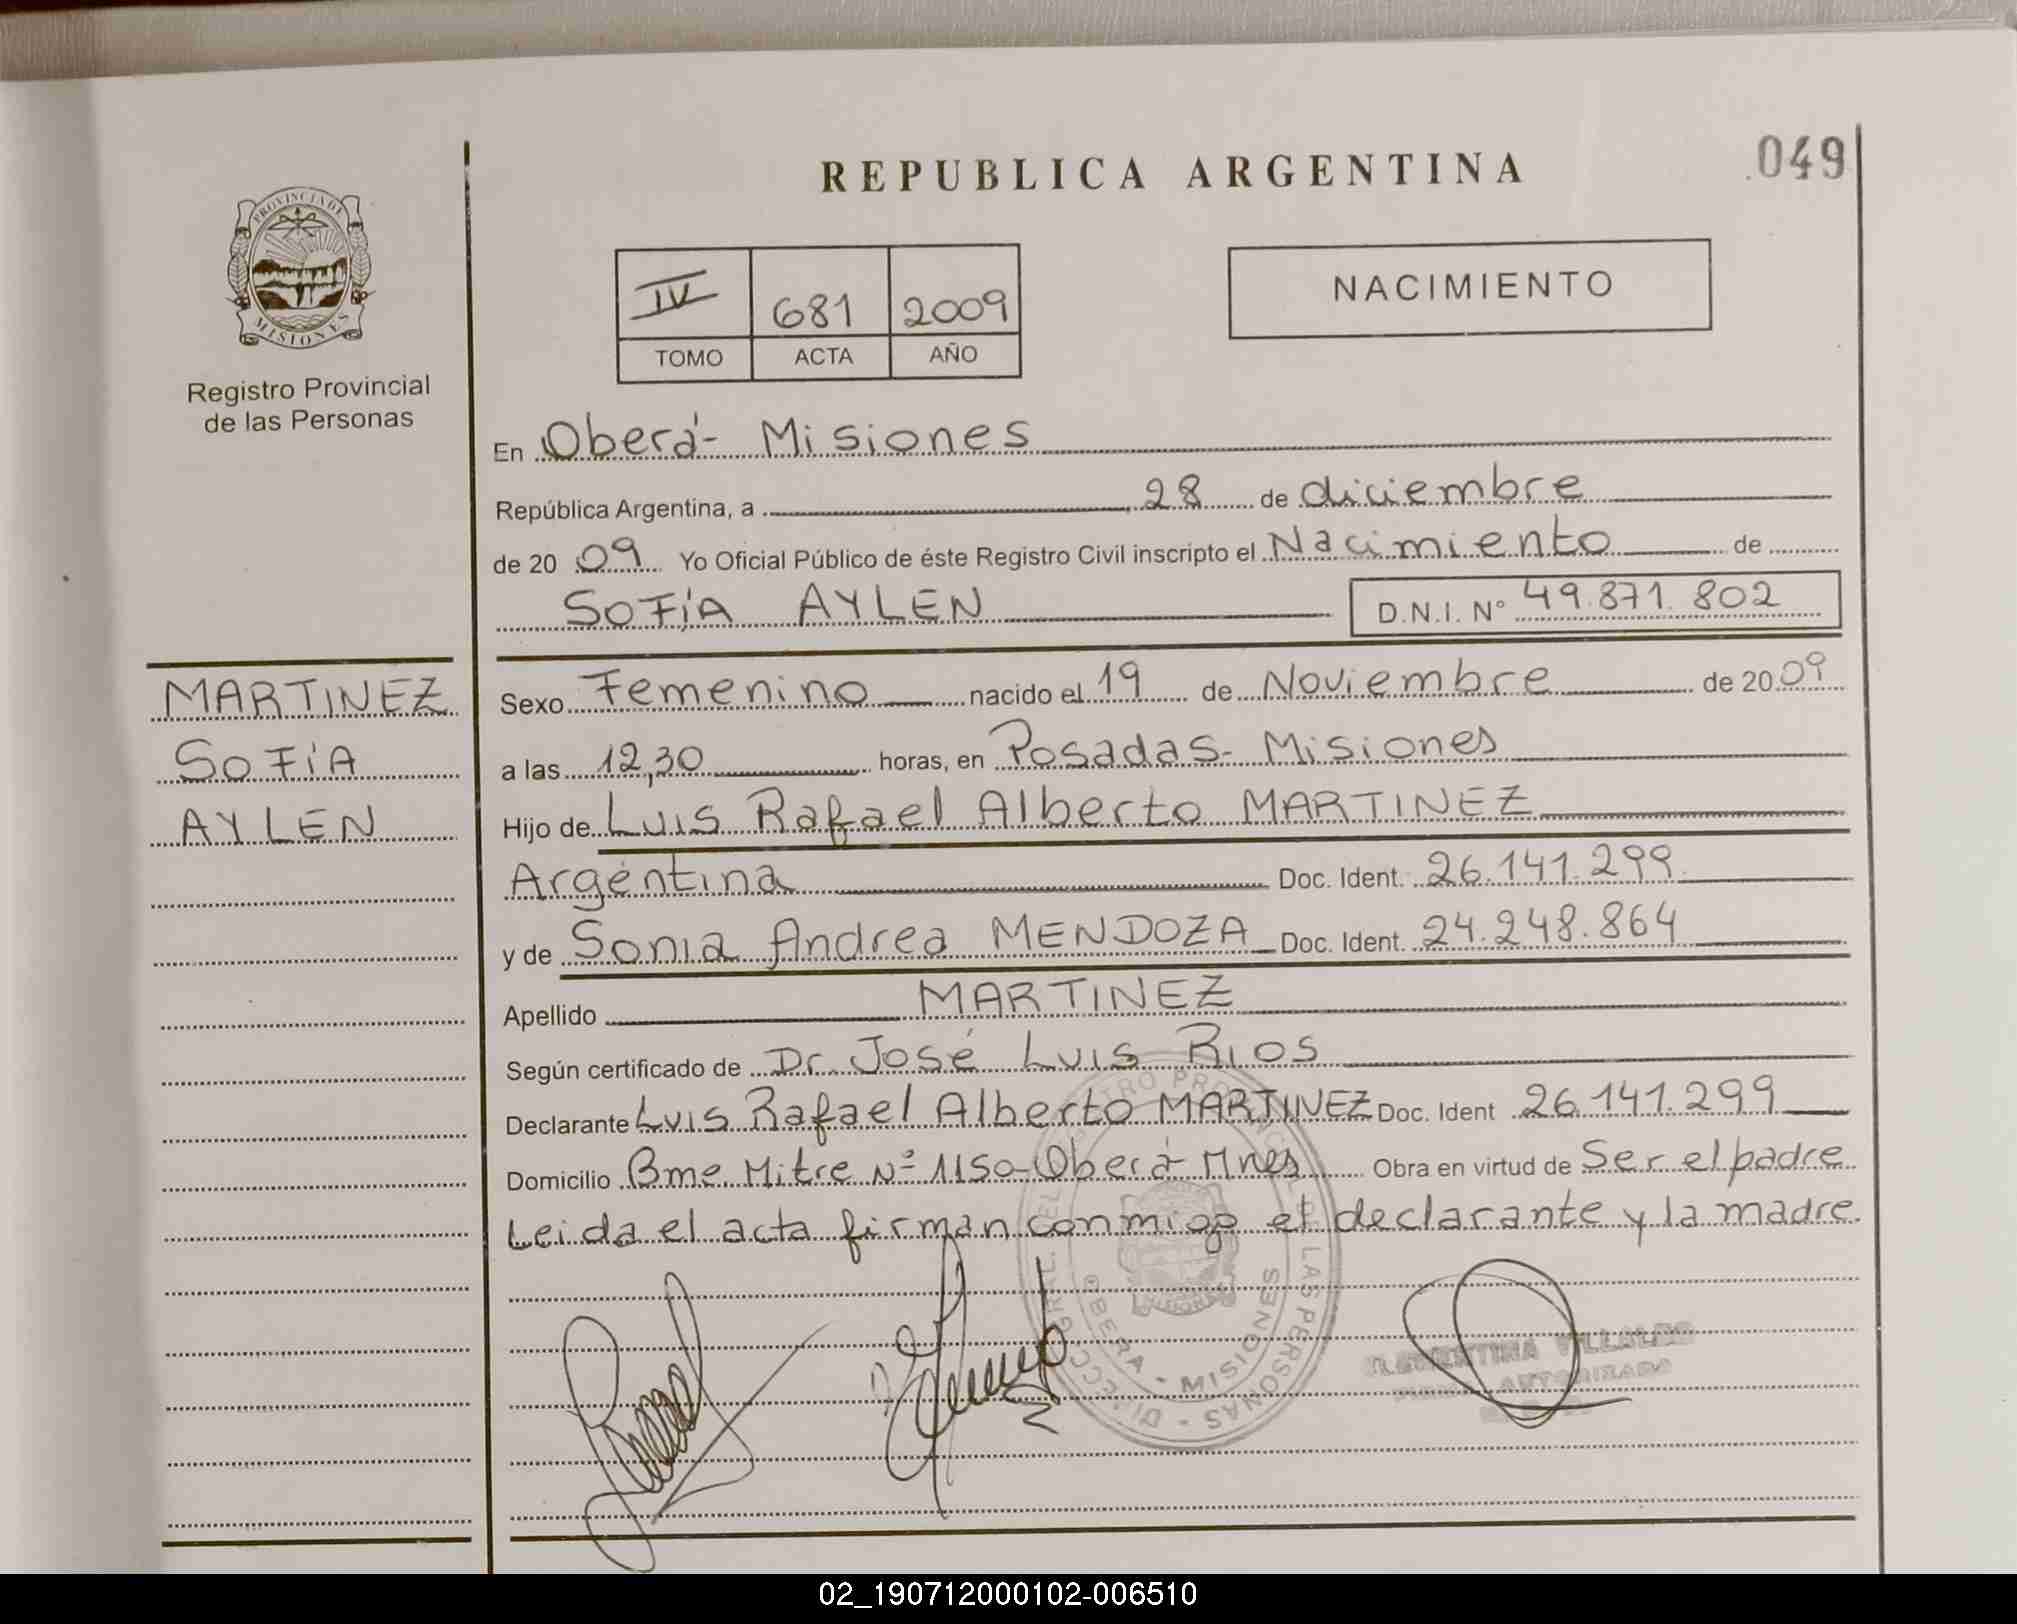 049
REPUBLICA ARGENTINA
PROVINCIA DE
MISIONES
Registro Provincial
de las Personas
IV 681 2009
TOMO ACTA AÑO
NACIMIENTO
En Oberá- Misiones
República Argentina, a 28 de diciembre
de 20 09 Yo Oficial Público de éste Registro Civil inscripto el Nacimiento de
SOFÍA AYLEN D.N.I. N° 49.871.802
MARTINEZ
SOFÍA
AYLEN
Sexo Femenino nacido el 19 de Noviembre de 20 09
a las 12,30 horas, en Posadas- Misiones
Hijo de Luis Rafael Alberto MARTINEZ
Argentina Doc. Ident. 26.141.299
y de Sonia Andrea MENDOZA Doc. Ident. 24.248.864
Apellido MARTINEZ
Según certificado de Dr. José Luis RIOS
Declarante Luis Rafael Alberto MARTINEZ Doc. Ident 26.141.299
Domicilio Bme. Mitre Nº 1150-Oberá- Mnes Obra en virtud de Ser el padre
Leida el acta firman conmigo el declarante y la madre.
OBERA - MISIONES
LAS PERSONAS
02_190712000102-006510